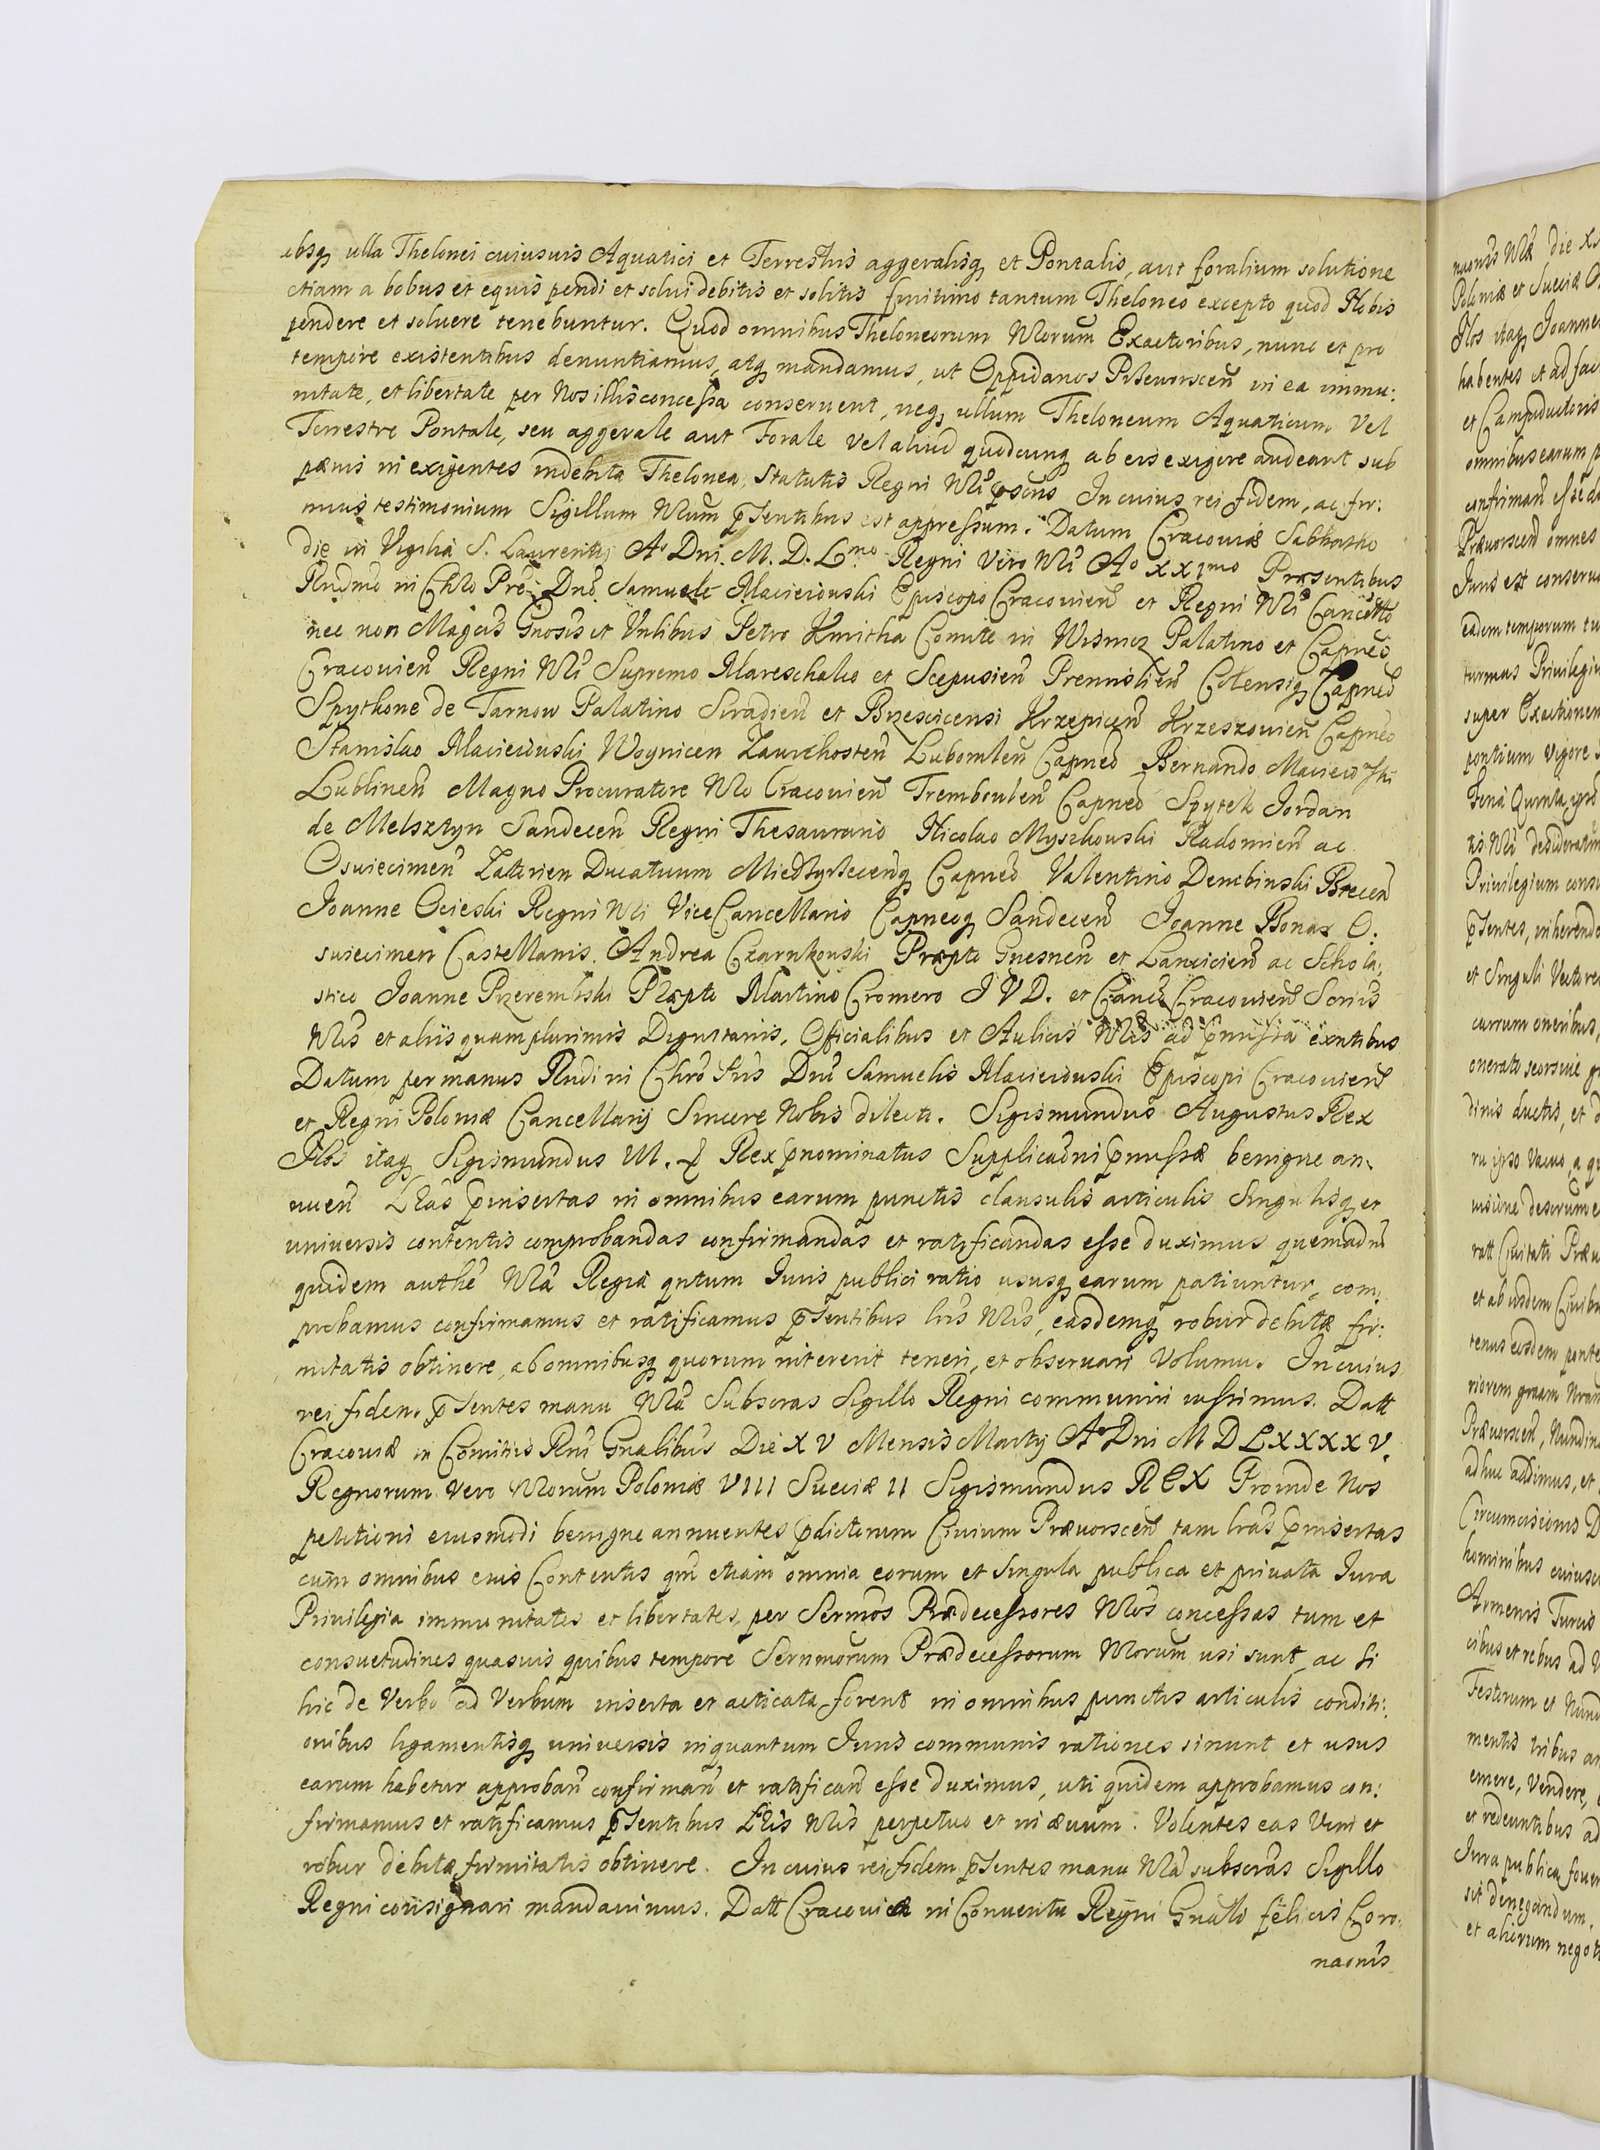 absq ulla Thelonei cuiusuis Aquatici et Terrestris aggeralisq et Pontalis, aut foralium solutione
etiam a bobus et equis pendi et solui debitis et solitis finitimo tantum Theloneo excepto quod Nobis
pendere et soluere tenebuntur. Quod omnibus Theloneorum Nrorum Exactoribus, nunc et pro
tempore existentibus denuntiamus, atq mandamus, ut Oppidanos Prseworscen in ea immu:
nitate, et libertate per Nos illis concessa conseruent, neq ullum Theloneum Aquaticum Vel
Terrestre Pontale, seu aggerale aut Forale Vel aliud quodcunq ab eis exigere audeant sub
pænis in exigentes indebita Thelonea, Statutis Regni Nri In cuius rei fidem, ac fir:
mius testimonium Sigillum Nrum pntibus est appressum. Datum Cracouiæ Sabbatho
die in Vigilia S. Laurentij Ao Dni. M. D. Lmo Regni Vero Nri Ao XXImo Præsentibus
Rndmo in Chro Pre Dno Samuele Macieiouski Episcopo Cracouien et Regni Nri Cancellrio
nec non Magcis Gnosis et Nobilibus Petro Kmitha Comite in Wisnicz Palatino et Capneo
Cracouien Regni Nri Supremo Mareschalco et Scepusien Premislien Colensiq Capneo
Spythone de Tarnow Palatino Siradien et Brzescicensi Krzepicen Krzeszouien Capneo
Stanislao Macieiouski Woynicen Zauichosten Lubomlen Capneo Bernardo Macieio ski
Lublinen Magno Procuratore Nro Cracouien Trembowlen Capneo Spytek Jordan
de Melsztyn Sandecen Regni Thesaurario Nicolao Myszkouski Radomien ac
Osuiecimen Zatorien Ducatuum Capneo Valentino Dembinski Biecen
Joanne Ocieski Regni Nri ViceCancellario Capneoq Sandecen Joanne Bonar O:
suiecimen Castellanis. Andrea Czarnkouski Præpto Gnesnen et Lancicien ac Schola:
stico Joanne Przerembski Præpto Martino Cromero J V D. et Canco Cracouien Scriis
Nris et aliis quam plurimis Dignitariis, Officialibus et Aulicis Nris ad pmissa exntibus
Datum per manus Rndi in Chro Pris Dni Samuelis Macieiouski Episcopi Cracouien
et Regni Poloniæ Cancellarij Sincere Nobis dilecti. Sigismundus Augustus Rex
Nos itaq Sigismundus III. Rex pnominatus Supplicaoni pmissæ benigne an:
nuen Lras pinsertas in omnibus earum punctis clausulis articulis Singulisq et
universis contentis comprobandas confirmandas et ratificandas esse duximus quemadm
quidem authe Nra Regia qntum Iuris publici ratio ususq earum patiuntur, com:
probamus confirmamus et ratificamus pntibus lris Nris, easdemq robur debitæ fir:
mitatis obtinere, ab omnibusq quorum intererit teneri, et obseruari Volumus. In cuius
rei fidem pntes manu Nra Subscras Sigillo Regni communiri iussimus. Datt
Cracouiæ in Comitiis Rni Gnalibus Die XV Mensis Martij Ao Dni M D L X X X X V.
Regnorum Vero Nrorum Poloniæ VIII Sueciæ II Sigismundus REX Proinde Nos
petitioni eiusmodi benigne annuentes pdictorum Ciuium Præuorscen tam lras pinsertas
cum omnibus eius Contentis qm etiam omnia eorum et Singula publica et priuata Iura
Priuilegia immunitates et libertates, per Sermos Prædecessores Nros concessas tum et
consuetudines quasuis quibus tempore Sernmorum Prædecessorum Nrorum usi sunt, ac si
hic de Verbo ad Verbum inserta et acticata forent in omnibus punctis articulis conditi:
onibus ligamentisq universis inquantum Iuris communis rationes sinunt et usus
earum habetur approban confirman et ratifican esse duximus, uti quidem approbamus con:
firmamus et ratificamus pntibus Lris Nris perpetuo et in æuum. Volentes eas Vim et
robur debitæ firmitatis obtinere. In cuius rei fidem pntes manu Nra subscras Sigillo
Regni consignari mandauimus. Datt Cracouiæ in Conuentu Regni Gnali felicis Coro:
naonis
naonis Nræ die
Poloniæ et Sueciæ
Nos itaq Joannes
habentes
et Campiductoris
omnibus earum
confirman esse
Præuorscen omnes
Iuris est
eadem temporum
Priuilegi
super Exactionem
pontium vigore
Quinta
desideratim
Priuilegium
pntes, inherendo
et Singuli Vectores
currum oneribus,
onerato seorsiue
ductis, et
ipso Vacuo, a
Ciuitati
et ab iisdem Ciuibus
tenus eisdem
riorem graam Nram
Præuorscen, Nundinas
adhuc addimus, et
Circumcisionis D
hominibus
Armenis Turcis
cibus et rebus ad
Festorum et Nund
mentis tribus
emere, Vendere,
et redeuntibus ad
Iura publica
sit denegandum.
et aliorum